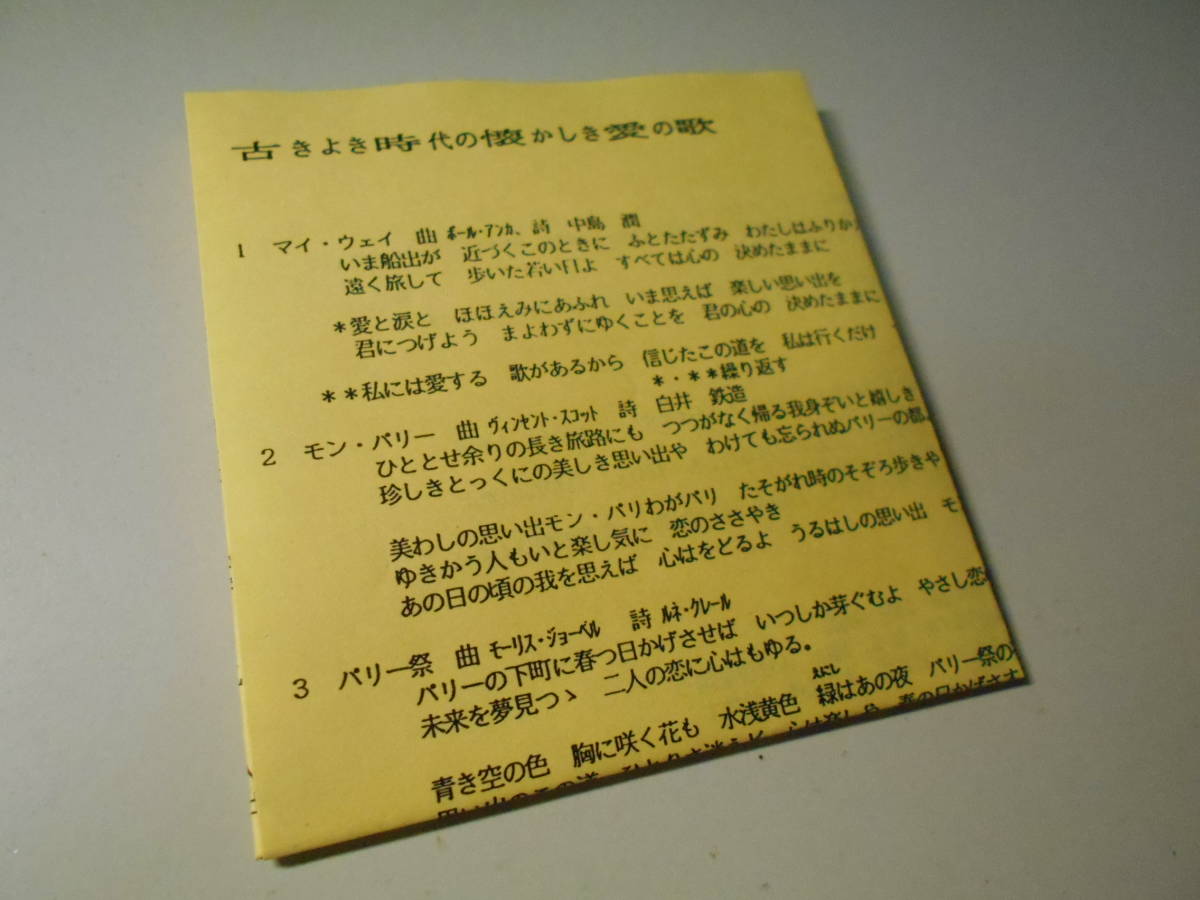 古きよき時代の懐かしき愛の歌
1 マイ・ウェイ 曲 ﾎﾟｰﾙ･ｱﾝｶ、詩 中島 潤
いま船出が 近づくこのときに ふとたたずみ わたしはふりか
遠く旅して 歩いた若い日よ すべては心の 決めたままに
*愛と涙と ほほえみにあふれ いま思えば 楽しい思い出を
君につげよう まよわずにゆくことを 君の心の 決めたままに
**私には愛する 歌があるから 信じたこの道を 私は行くだけ
*・**繰り返す
2 モン・パリー 曲 ｳﾞｨﾝｾﾝﾄ･ｽｺｯﾄ 詩 白井 鉄造
ひととせ余りの長き旅路にも つつがなく帰る我身ぞいと嬉しき
珍しきとっくにの美しき思い出や わけても忘られぬパリーの都
美わしの思い出モン・パリわがパリ たそがれ時のそぞろ歩きや
ゆきかう人もいと楽し気に 恋のささやき
あの日の頃の我を思えば 心はをどるよ うるはしの思い出 モ
3 パリー祭 曲 ﾓｰﾘｽ･ｼﾞｮｰﾍﾞﾙ 詩 ﾙﾈ･ｸﾚｰﾙ
パリーの下町に春つ日かげさせば いつしか芽ぐむよ やさし恋
未来を夢見つゝ 二人の恋に心はもゆる。
えにし
青き空の色 胸に咲く花も 水浅黄色 緑はあの夜 パリー祭の
思い出のこの道